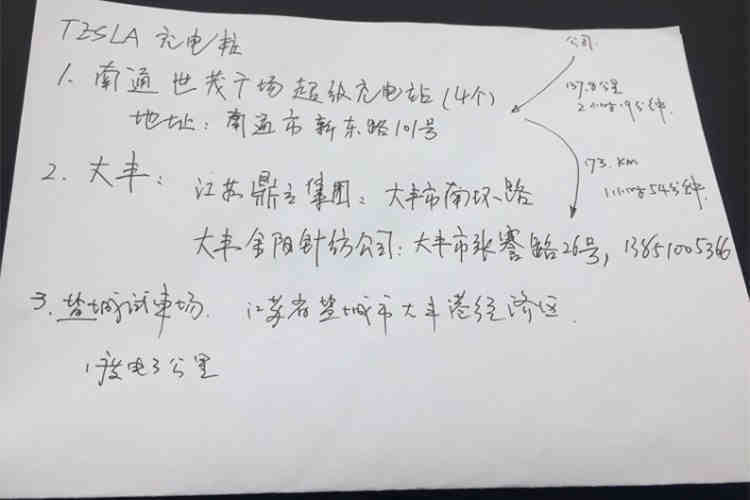 TESLA 充电桩
公司
137.8公里
2小时9分钟
1. 南通世茂广场超级充电站(4个)
地址:南通市新东路101号
173. km
1小时54分钟
2. 大丰:
江苏鼎立集团:大丰市南环路
大丰金阳针纺公司:大丰市张謇路26号,13851005366
3. 盐城试车场. 江苏省盐城市大丰港经济区.
1度电3公里